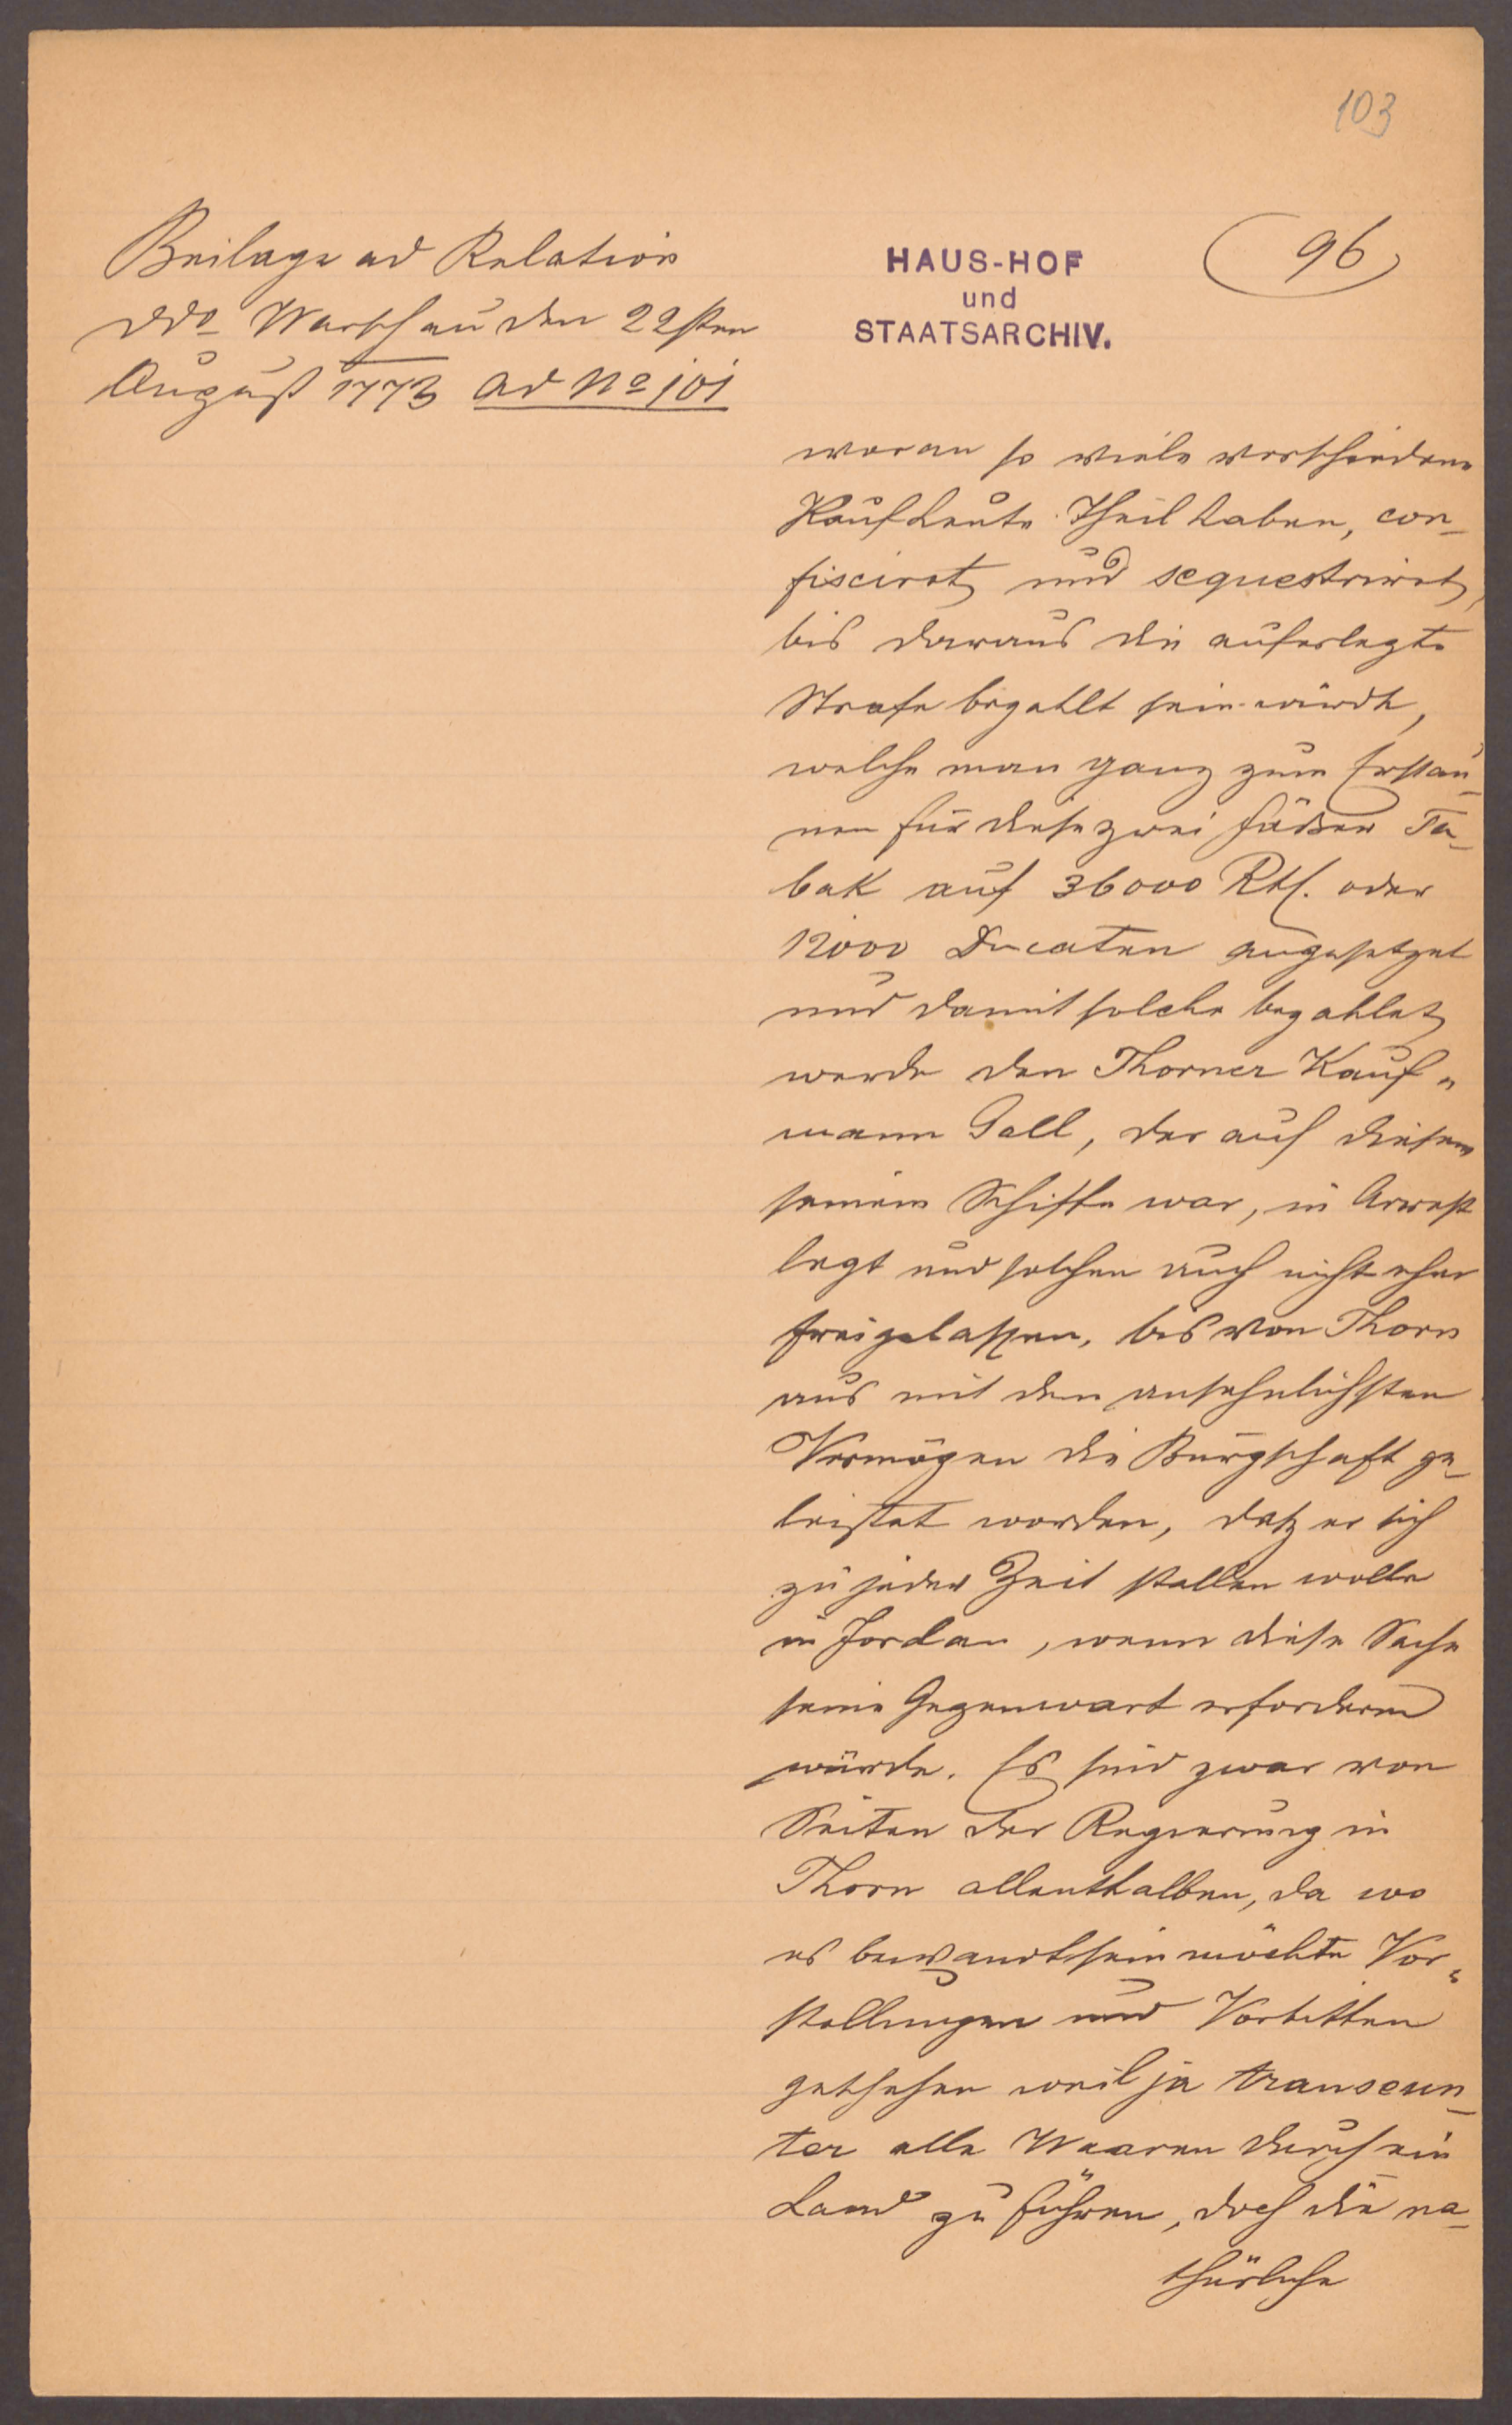 103
Beilage ad Relation
ddo Warschau den 22sten
August 1773 ad No 101
HAUS-HOF
und
STAATSARCHIV.
96
woran so viele verschiedene
Kaufleute Theil haben, con-
fiscirt und sequestrirt,
bis daraus die auferlegte
Strafe bezahlt sein würde,
welche man ganz zum Erstau-
nen für diese zwei Fäßer Ta-
bak auf 36000 Rtl. oder
12000 Ducaten angesetzet
und damit solche bezahlet
werde den Thorner Kauf-
mann Gall, der auf diesem
seinem Schiffe war, in Arrest
legt und solchen auch nicht eher
freigelassen, bis von Thorn
aus mit dem ansehnlichsten
Vermögen die Bürgschaft ge-
leistet worden, daß er sich
zu jeder Zeit stellen wolle
in Fordan, wenn diese Sache
seine Gegenwart erfordern
würde. Es sind zwar von
Seiten der Regierung in
Thorn allenthalben, da wo
es bewandt sein möchte Vor-
stellungen und Vorbitten
geschehen weil ja transeun-
ter alle Waaren durch ein
Land zu führen, doch die na-
thürliche